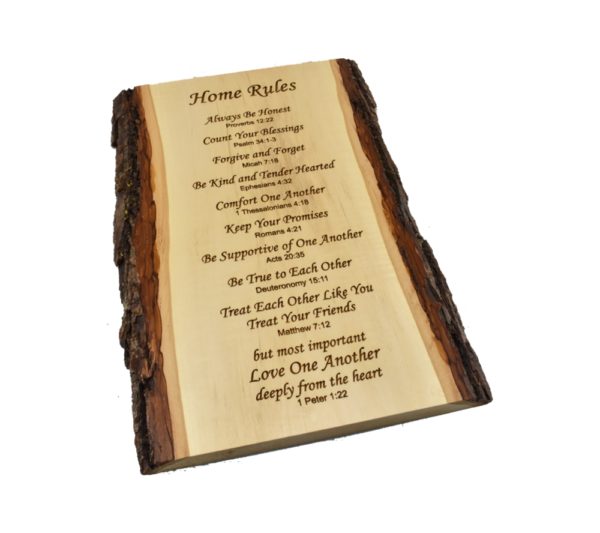 Home Rules
Always Be Honest
Proverbs 12:22
Count Your Blessings
Psalm 34:1-3
Forgive and Forget
Micah 7:18
Be Kind and Tender Hearted
Ephesians 4:32
Comfort One Another
1 Thessalonians 4:18
Keep Your Promises
Romans 4:21
Be Supportive of One Another
Acts 20:35
Be True to Each Other
Deuteronomy 15:11
Treat Each Other Like You
Treat Your Friends
Matthew 7:12
but most important
Love One Another
deeply from the heart
1 Peter 1:22